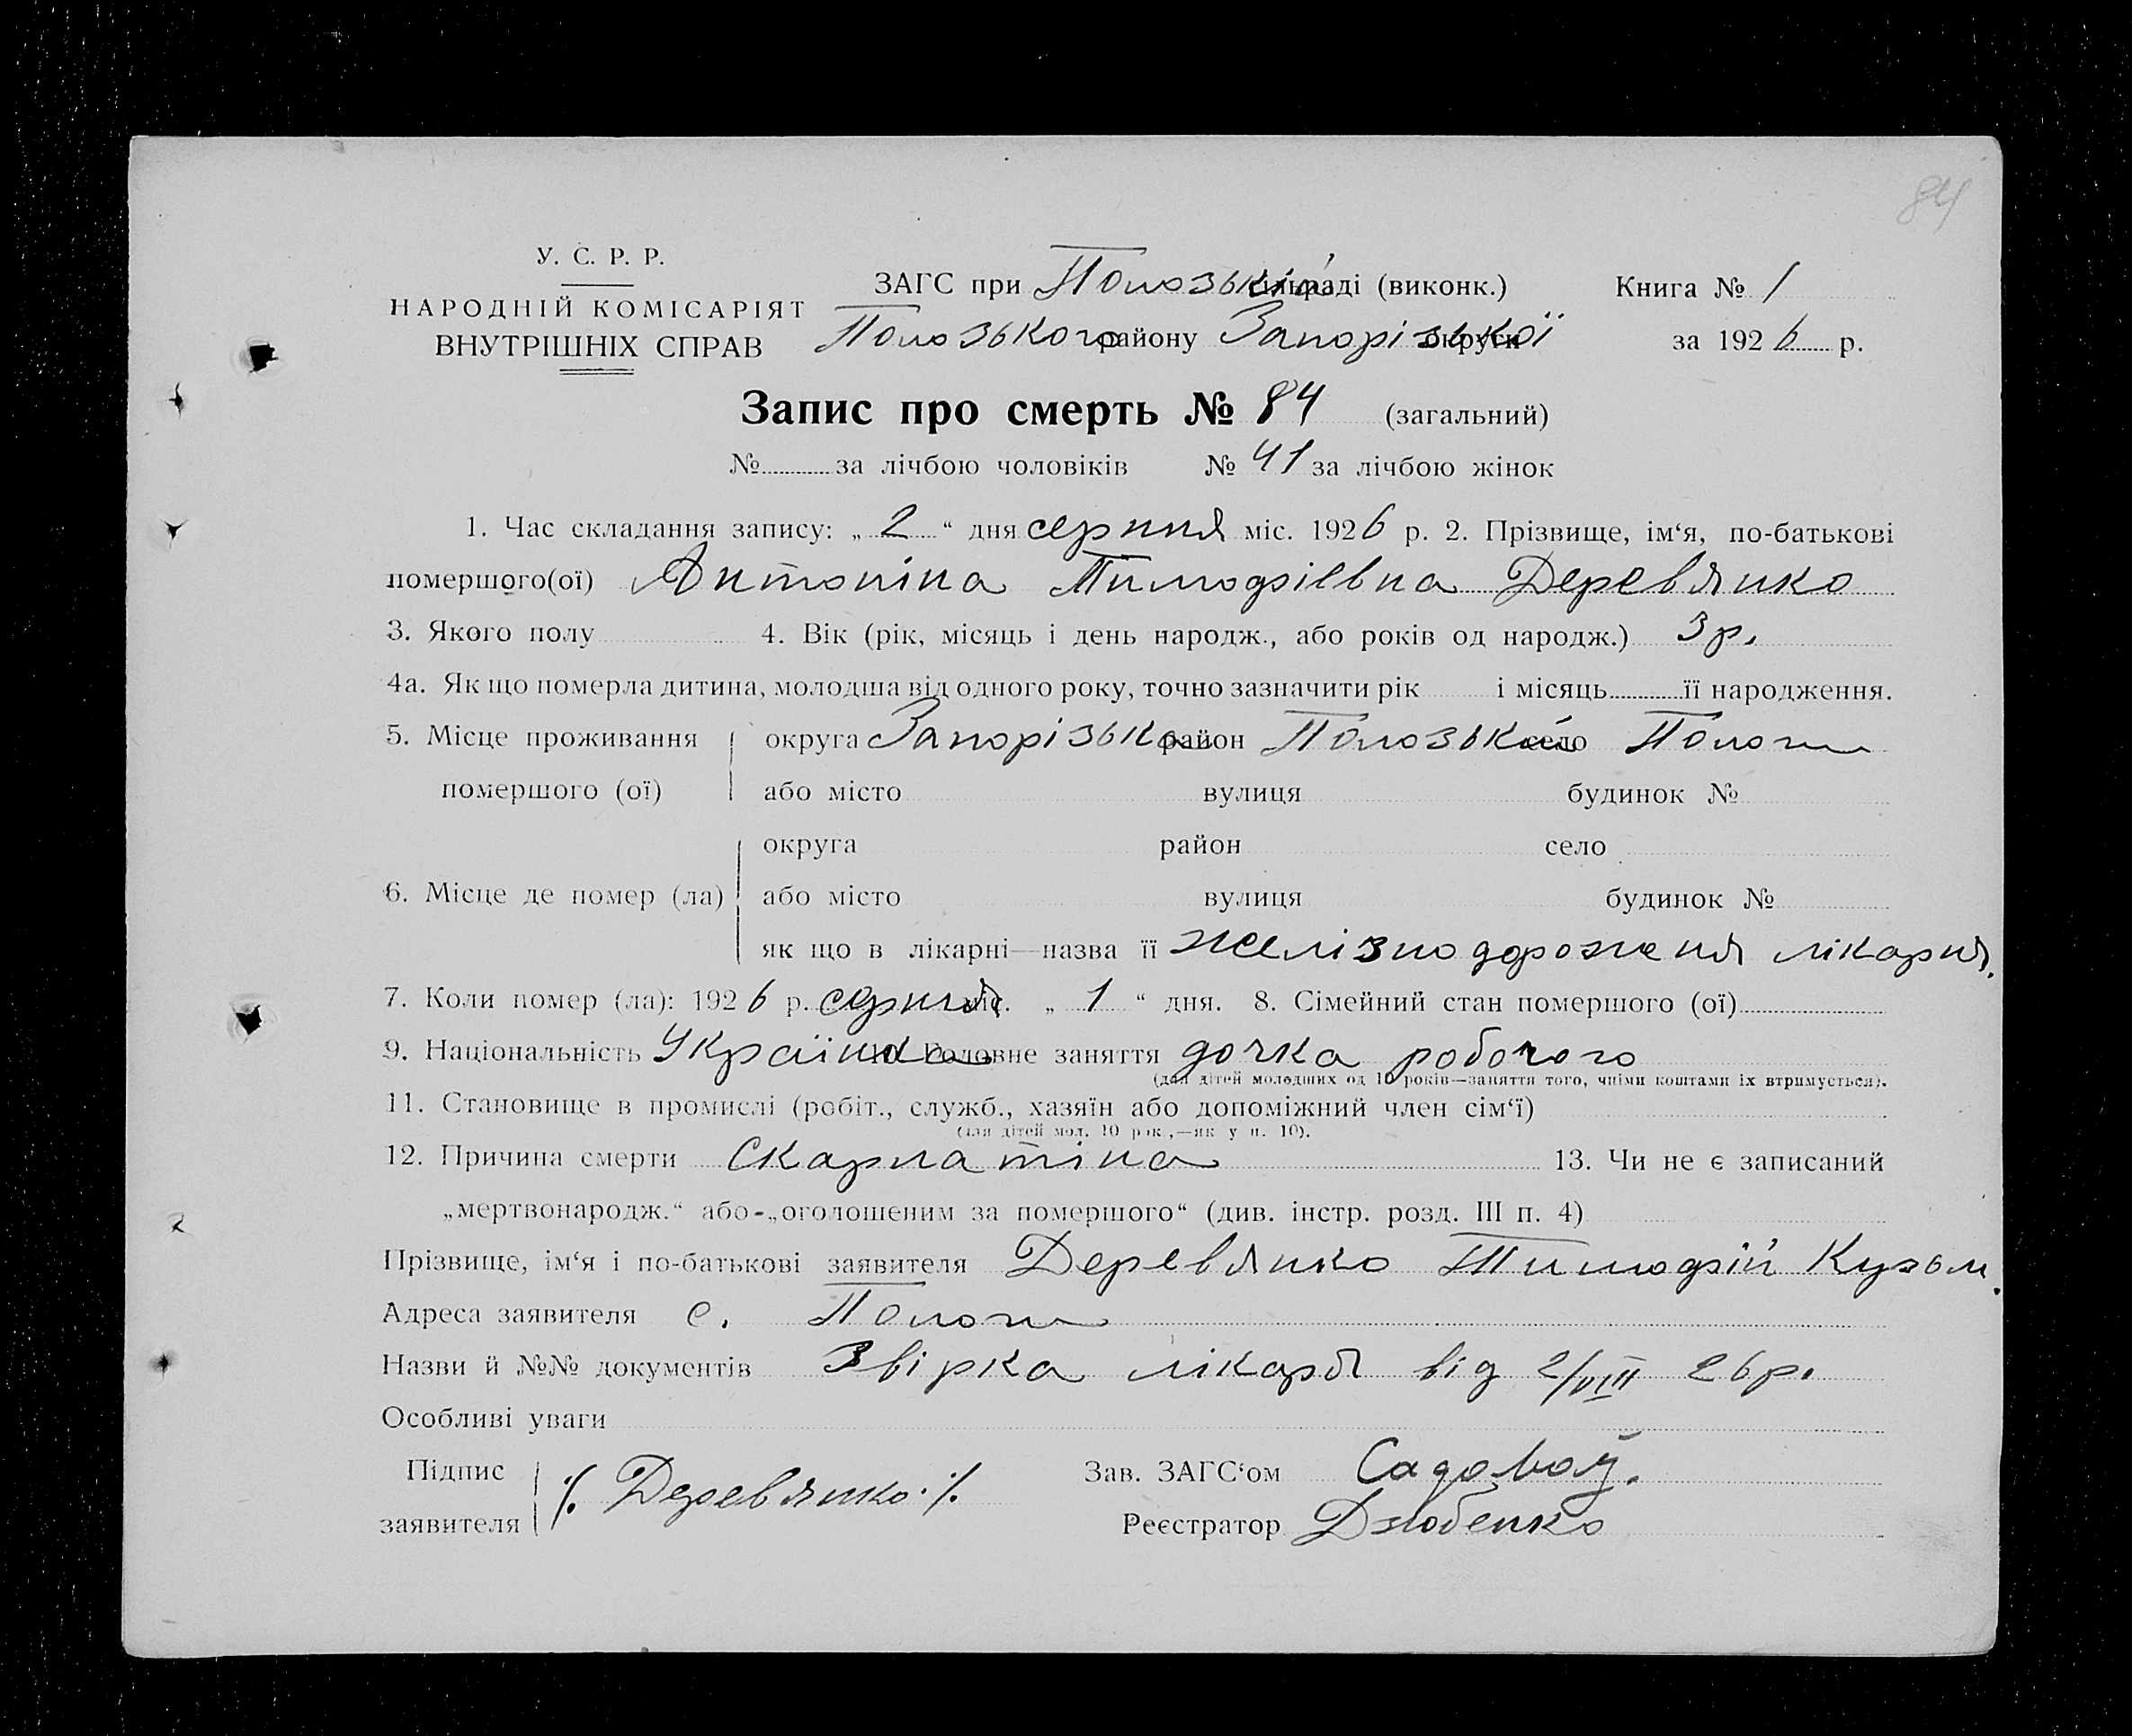 84
У. С. Р. Р.
НАРОДНІЙ КОМІСАРІЯТ
ВНУТРІШНІХ СПРАВ
ЗАГС при Полозській раді (виконк.)
Полозького району Запорізької округи
Книга № 1
за 1926 р.
Запис про смерть № 84 (загальний)
№ за лічбою чоловіків № 41 за лічбою жінок
1. Час складання запису: „2“ дня серпня міс. 1926 р. 2. Прізвище, ім‘я, по-батькові
помершого(ої) Антоніна Тимофіївна Деревянко
3. Якого полу 4. Вік (рік, місяць і день народж., або років од народж.) 3 р.
4а. Як що померла дитина, молодша від одного року, точно зазначити рік і місяць її народження.
5. Місце проживання округа Запорізька район Полозький село Пологи
помершого (ої) або місто вулиця будинок №
округа район село
6. Місце де помер (ла) або місто вулиця будинок №
як що в лікарні—назва її желізнодорожня лікарня.
7. Коли помер (ла): 1926 р. серпня міс. „1“ дня. 8. Сімейний стан помершого (ої)
9. Національність Українка 10. Головне заняття дочка робочого
(для дітей молодших од 10 років—заняття того, чиїми коштами їх втримується).
11. Становище в промислі (робіт., служб., хазяїн або допоміжний член сім‘ї)
(для дітей мол. 10 рок.,—як у п. 10).
12. Причина смерти Скарлатіна 13. Чи не є записаний
„мертвонародж.“ або-„оголошеним за помершого“ (див. інстр. розд. III п. 4)
Прізвище, ім‘я і по-батькові заявителя Деревянко Тимофій Кузьм.
Адреса заявителя с. Пологи
Назви й №№ документів Звірка лікаря від 2/VIII 26 р.
Особливі уваги
Підпис
заявителя /. Деревянко ./.
Зав. ЗАГС‘ом Садовой.
Реєстратор Дзюбенко